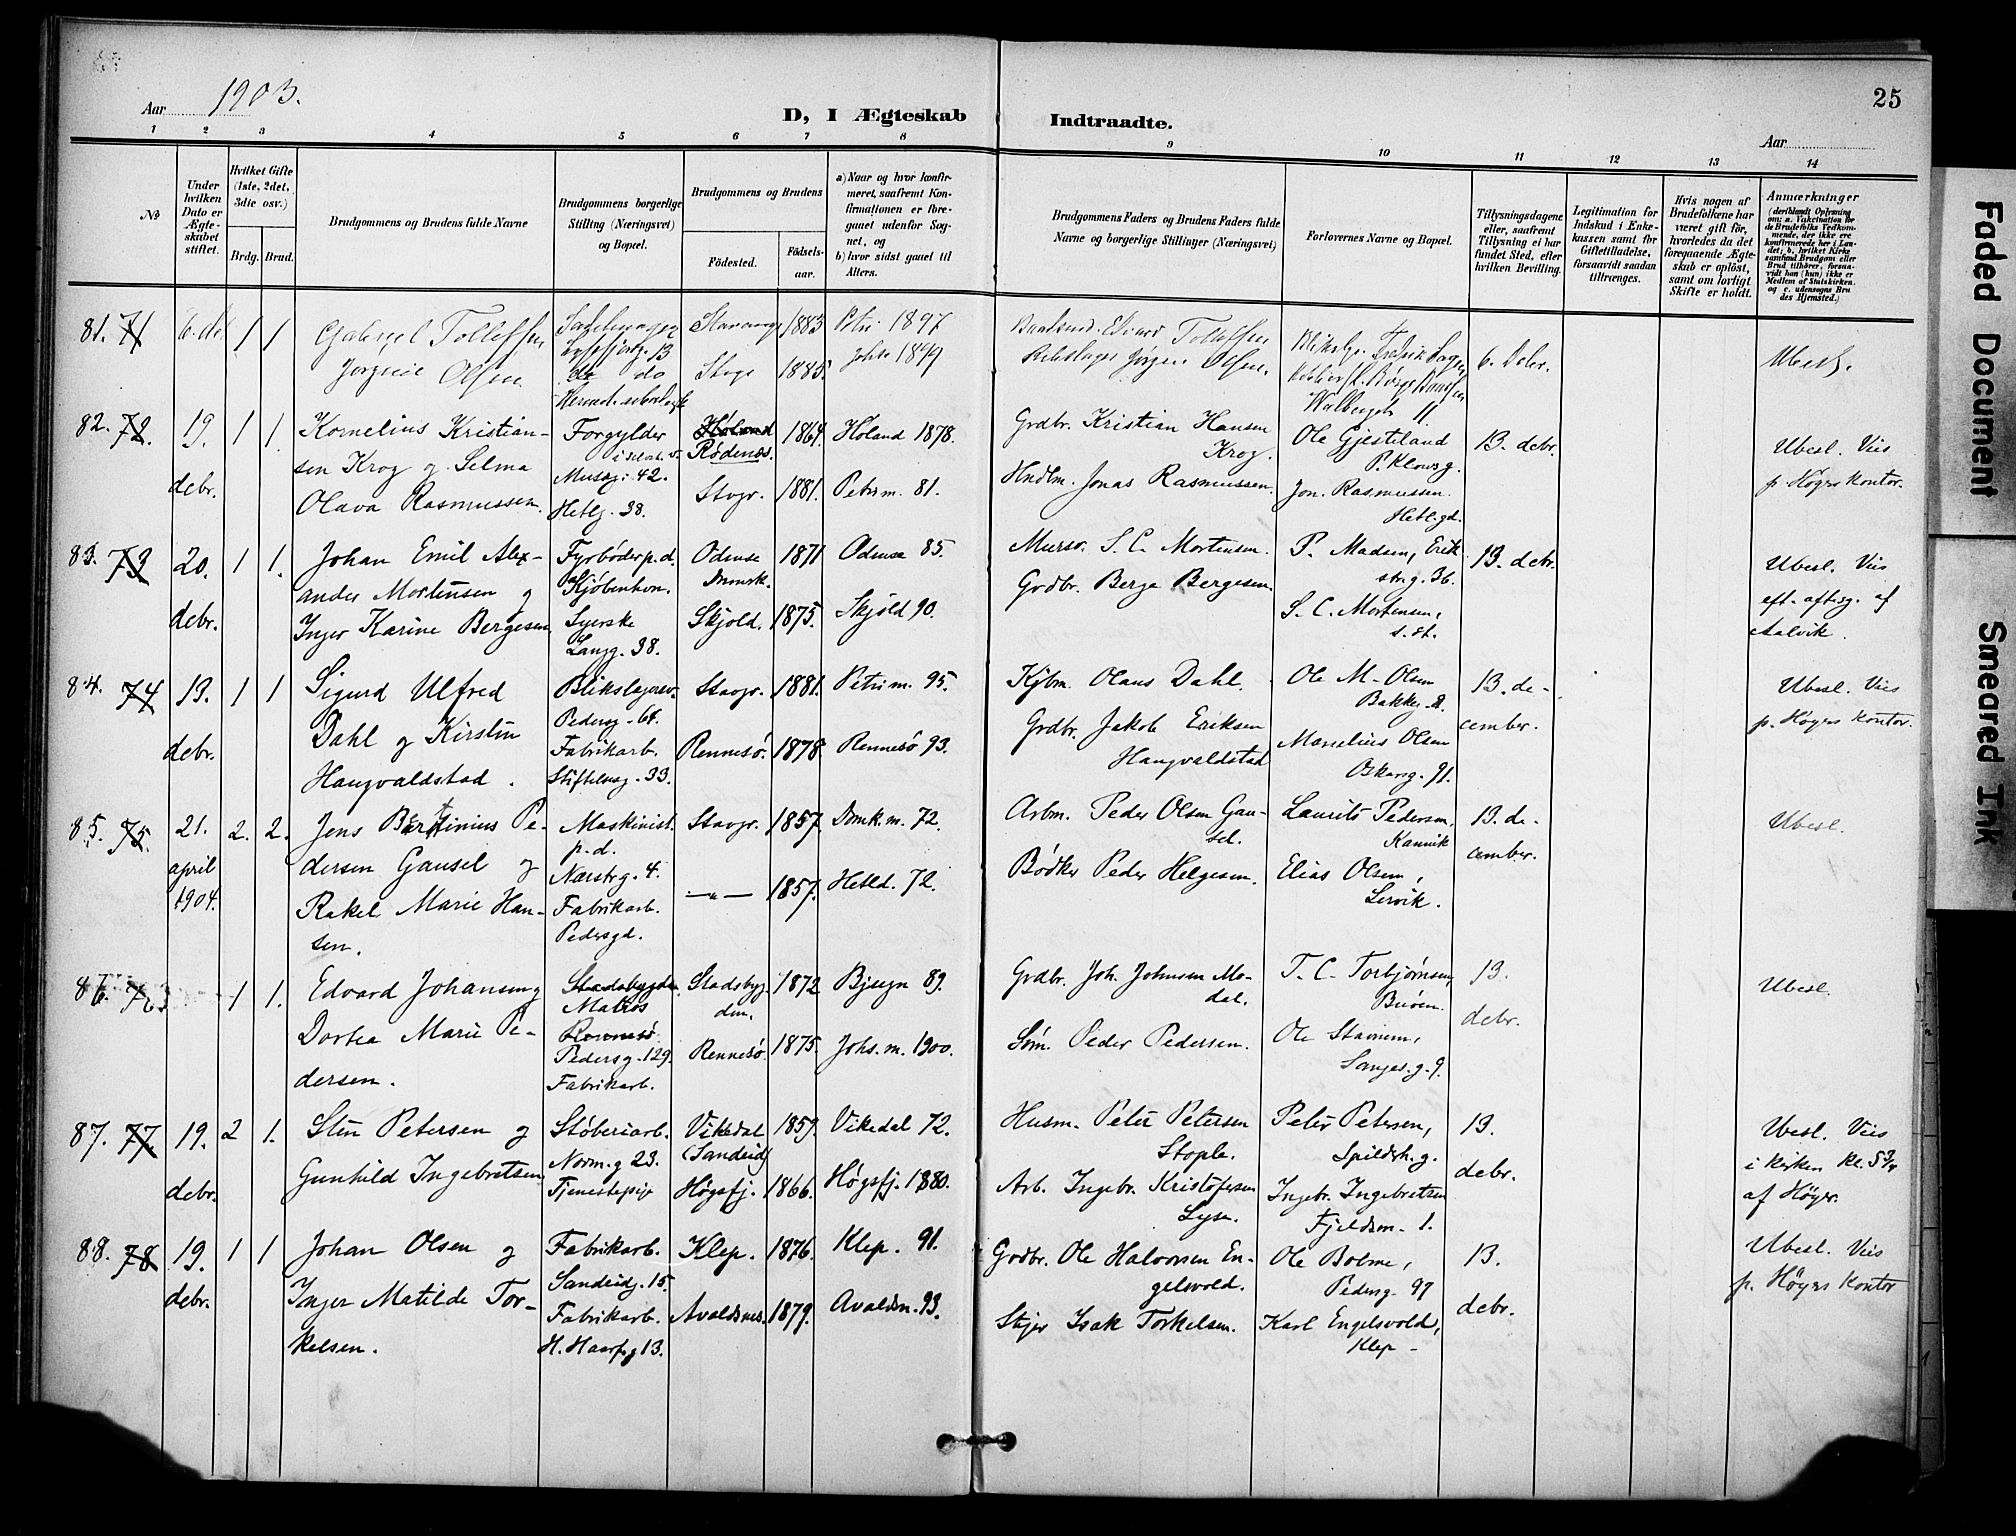 25
Aar 1903.
D, I Ægteskab
Indtraadte.
Aar
1 2 3 4 5 6 7 8 9 10 11 12 13 14
№
Under
hvilken
Dato er
Ægte-
skabet
stiftet.
Hvilket Gifte
(1ste, 2det,
3die osv.)
Brdg. Brud.
Brudgommens og Brudens fulde Navne
Brudgommens borgerlige
Stilling (Næringsvei)
og Bopæl.
Brudgommens og Brudens
Fødested.
Fødsels-
aar.
a) Naar og hvor konfir-
meret, saafremt Kon-
firmationen er fore-
gaaet udenfor Sog-
net, og
b) hvor sidst gaaet til
Alters.
Brudgommens Faders og Brudens Faders fulde
Navne og borgerlige Stillinger (Næringsvei)
Forlovernes Navne og Bopæl.
Tillysningsdagene
eller, saafremt
Tillysning ei har
fundet Sted, efter
hvilken Bevilling.
Legitimation for
Indskud i Enke-
kassen samt for
Giftetilladelse,
forsaavidt saadan
tiltrænges.
Hvis nogen af
Brudefolkene har
været gift før,
hvorledes da det
foregaaende Ægte-
skab er opløst,
samt om lovligt
Skifte er holdt.
Anmærkninger
(deriblandt Oplysning
om: a. Vakcination for
de Brudefolks Vedkom-
mende, der ikke ere
konfirmerede her i Lan-
det; b. hvilket Kirke
samfund Brudgom eller
Brud tilhører, forsaa-
vidt han (hun) ikke er
Medlem af Statskirken.
og c. udensogns Bru
des Hjemsted.)
81. 71
1 1
Gabriel Tollefsen
Jorgine Olsen
13
do
1883
1885.
1897
1899
Tollefsen
Jørgen Olsen
11
6. Debr.
Ubesl.
82. 72.
19.
debr.
1 1.
Kornelius Kristian-
sen Krog og Selma
Olava Rasmussen.
Forgylder
Musg. 42.
Hetlg. 38.
Høland
Rødenæs.
Stvgr.
1864.
1881.
Høland 1878.
Petrim. 81.
Grdbr. Kristian Hansen
Krog.
Hndlm. Jonas Rasmussen.
Ole Gjesteland
P. Klowsg.
Jon. Rasmussen.
Hetl.gd.
13. debr.
Ubesl. Viis
p. Høyers kontor.
83. 73
20.
debr.
1 1.
Johan Emil Alex-
ander Mortensen og
Inger Karine Bergesen
Fyrbøder p.d.
Kjøbenhvn.
Syerske
Langg. 38.
Odense
Danmk.
Skjold.
1871
1875.
Odense 85.
Skjold 90.
Mursv. S. C. Mortensen.
Grdbr. Berge Bergesen.
P. Madsen, Erik
strg. 36.
S. C. Mortensen,
s. st.
13. debr.
Ubesl. Viis
eft. aftsg. af
Aalvik.
84. 74
13.
debr.
1 1
Sigurd Ulfred
Dahl og Kirstin
Haugvaldstad.
Blikslagersv.
Pedersg. 64.
Fabrikarb.
Stiftelsesg. 33.
Stavgr.
Rennesø.
1881.
1878.
Petri m. 95.
Rennesø 93.
Kjbm. Olaus Dahl.
Grdbr. Jakob Eriksen
Haugvaldstad
Ole M. Olsen
Bakkeg. 2.
Mauelius Olsen
Oskarsg. 91.
13. de-
cember.
Ubesl. Viis
p. Høyers kontor.
85. 75.
21.
april
1904.
2. 2.
Jens Bertinius Pe-
dersen Gausel og
Rakel Marie Han-
sen.
Maskinist.
p.d.
Nørstrg. 4.
Fabrikarb.
Pedersgd.
Stavgr.
—"—
1857
1857.
Domk.m. 72.
Hetld. 72.
Arbm. Peder Olsen Gau-
sel.
Bødker Peder Helgesen.
Laurits Pedersen,
Kannik
Elias Olsen,
Lervik.
13. de-
cember.
Ubesl.
86. 76
1 1.
Edvard Johansen og
Dortea Marie Pe-
dersen.
Stadsbygden.
Matros
Rennesø
Pedersg. 129
Fabrikarb.
Stadsbyg-
den.
Rennesø.
1872
1875.
Bjugn 89.
Johs. m. 1900.
Grdbr. Joh. Johnsen Mo-
dal.
Søm. Peder Pedersen.
T. C. Torbjørnsen,
Buøen.
Ole Stavnem,
Langesg. 9.
13.
debr.
Ubesl.
87. 77.
19.
debr.
2 1.
Sten Petersen og
Gunhild Ingebretsen
Støberiarb.
Norm.g 23.
Tjenestepige
Vikedal
(Sandeid)
Høgsfj.
1859.
1866.
Vikedal 72.
Høgsfj. 1880.
Husm. Peter Petersen
Stople.
Arb. Ingebr. Kristofersen
Lyse.
Peter Petersen,
Spildrh.g.
Ingebr. Ingebretsen
Fjeldsm. 1.
13.
debr.
Ubesl. Viis
i kirken kl. 5 3/4
af Høyer.
88. 78
19.
debr.
1 1
Johan Olsen og
Inger Matilde Tor-
kelsen.
Fabrikarb.
Sandeidg. 15.
Fabrikarb.
H. Haarf.g 13.
Klep.
Avaldsnes.
1876.
1879.
Klep. 91.
Avaldsn. 93.
Grdbr. Ole Halvorsen En-
gelsvold.
Skjev Isak Torkelsen.
Ole Bolme,
Pedersg. 97
Karl Engelsvold,
Klep -
13.
debr.
Ubesl. Viis
p. Høyers kontor
Faded Document
Smeared Ink